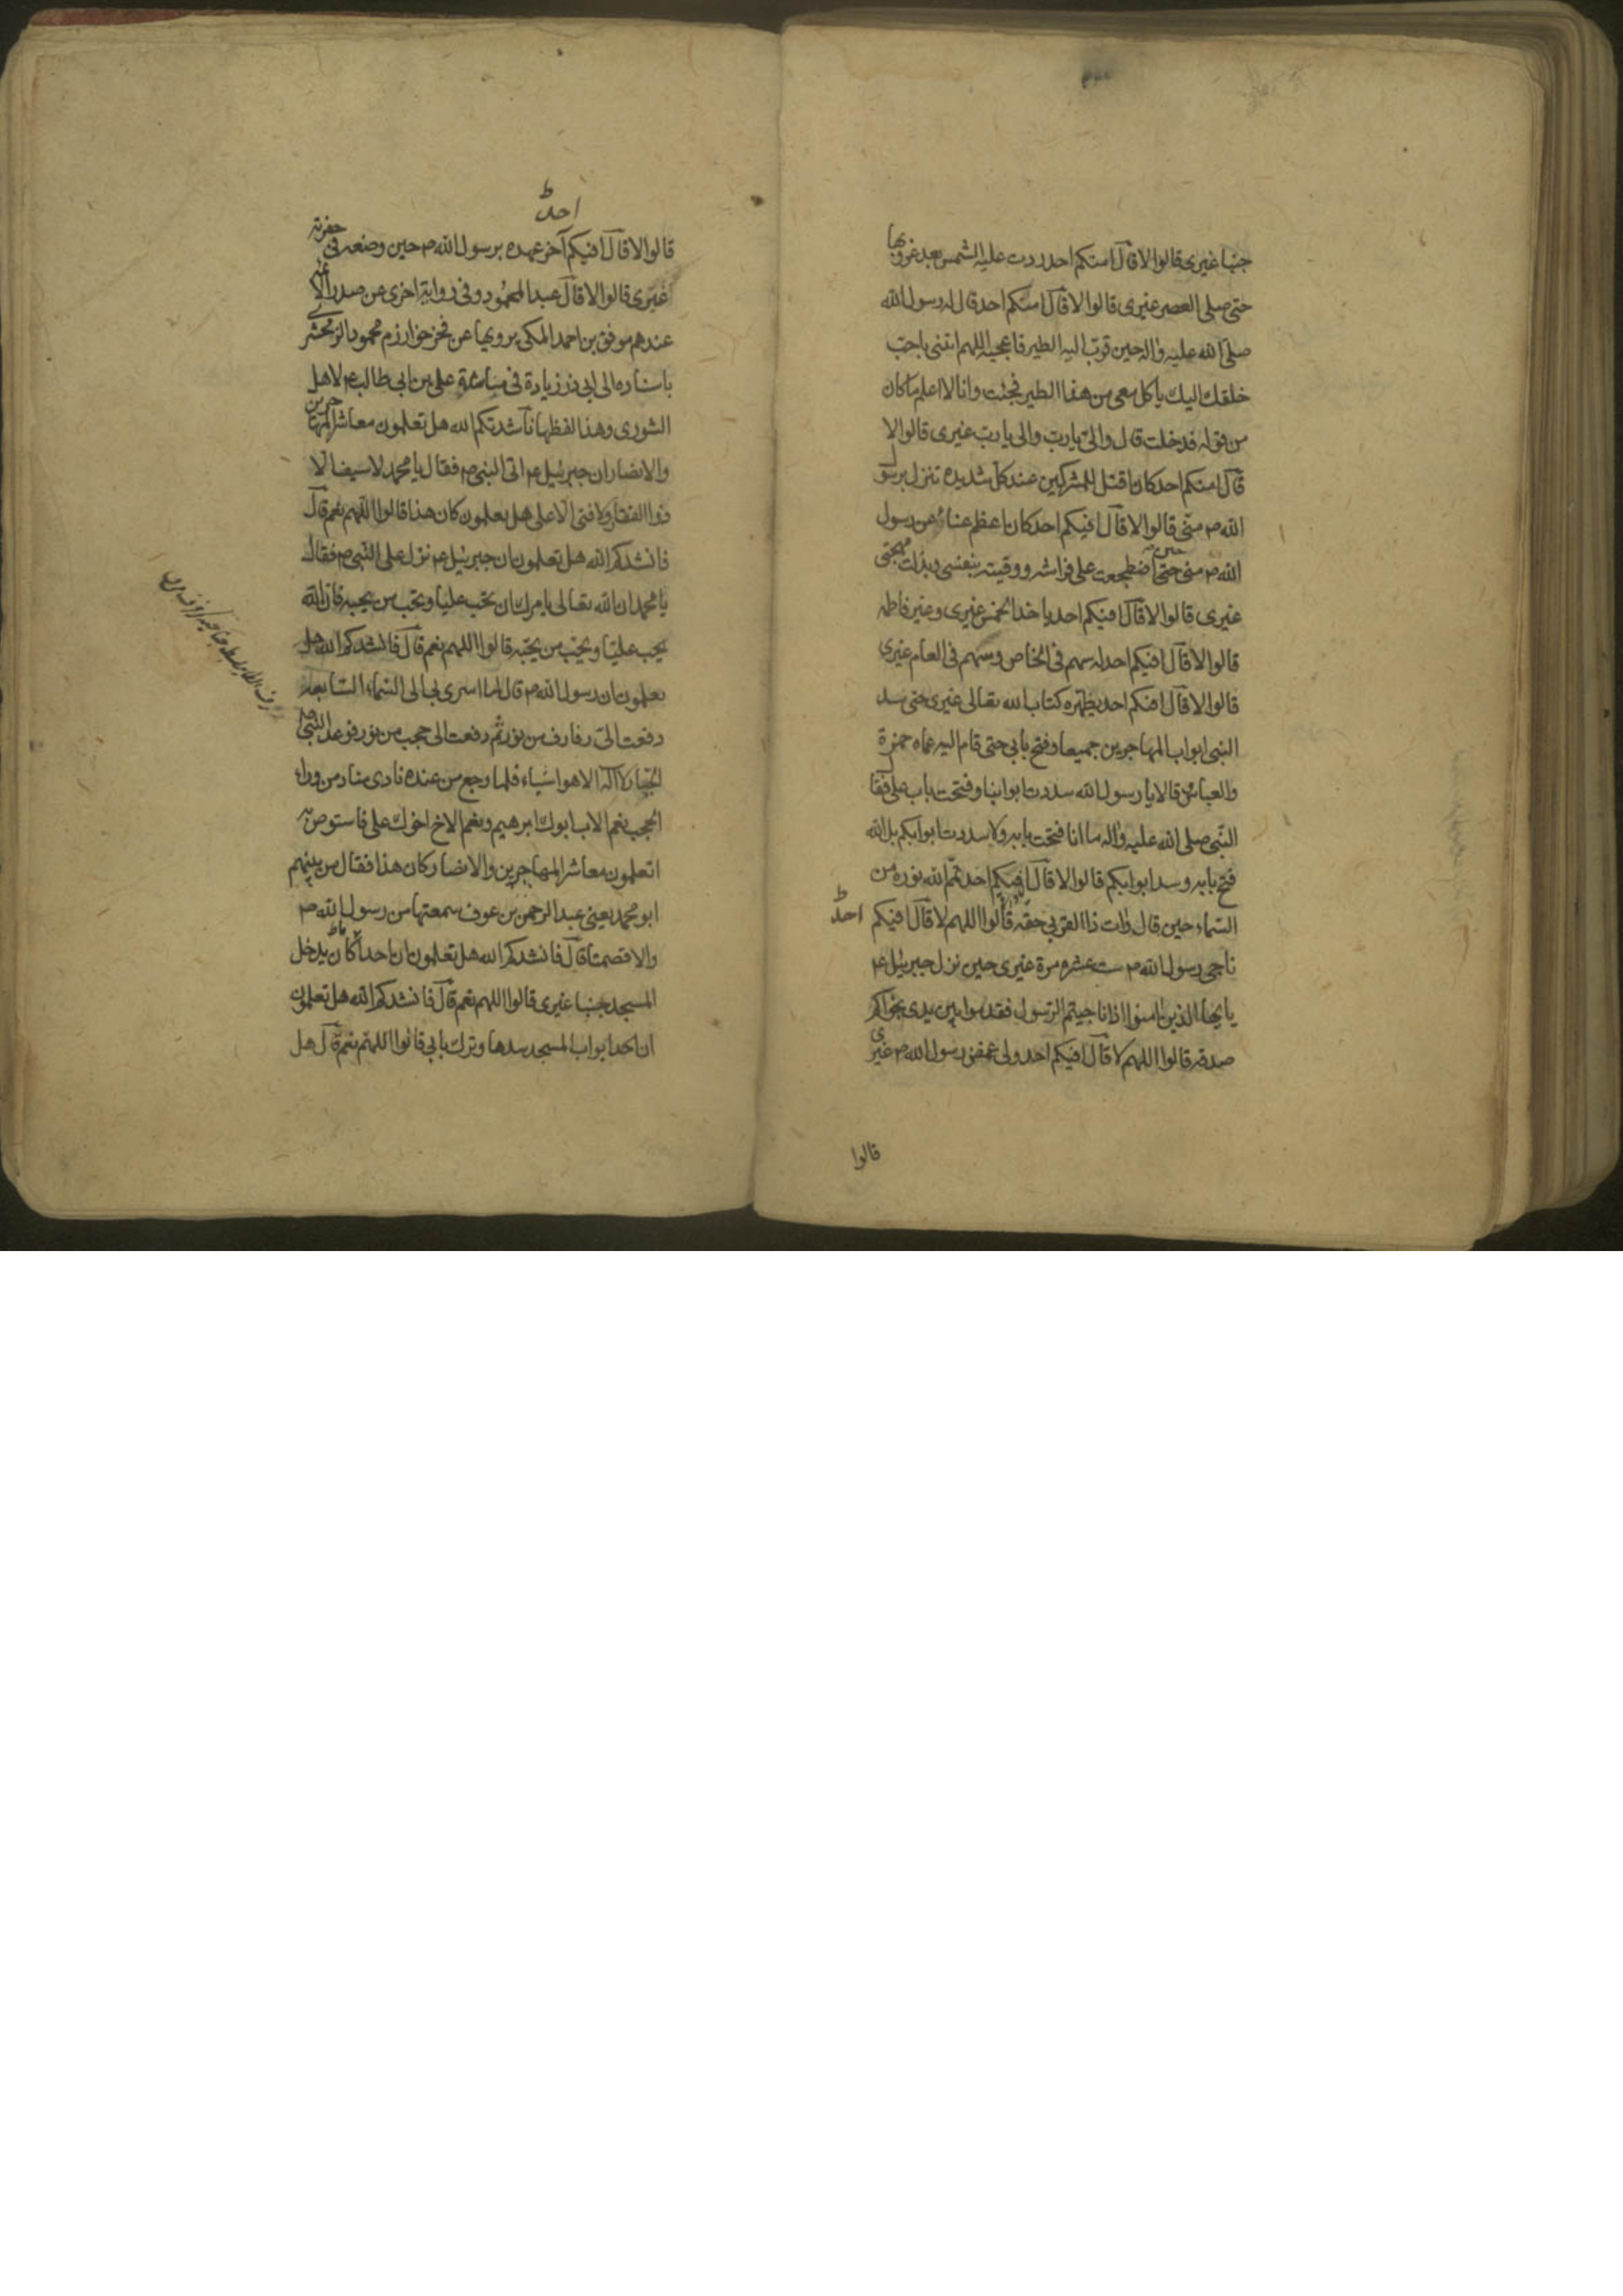 جنبا غيرى قالوا لا قال امنكم احد ردت عليه الشمس بعد غروبها
حتى صلى العصر غيرى قالوا لا قال امنكم احد قال له رسول الله
صلى الله عليه واله حين قرب اليه الطير فاعجبه اللهم ائتنى باحب
خلقك اليك ياكل معى من هذا الطير فجئت وانا لا اعلم ما كان
من قوله فدخلت قال والى يا رب والى يا رب غيرى قالوا لا
قال امنكم احد كان اقتل للمشركين عند كل شديده تنزل برسول
الله ص منى قالوا لا قال افيكم احد كان اعظم عناء عن رسول
الله ص منى حتى حين اضطجعت على فراشه ووقيته بنفسى وبذلت مهجتى
غيرى قالوا لا قال افيكم احد ياخذ الخمس غيرى وغير فاطمه
قالوا لا قال افيكم احد له سهم فى الخاص وسهم فى العام غيرى
قالوا لا قال افيكم احد يطهره كتاب الله تعالى غيرى حتى سد
النبى ابواب المهاجرين جميعا وفتح بابى حتى قام اليه عماه حمزة
والعباس قالا يا رسول الله سددت ابوابنا وفتحت باب على فقال
النبى صلى الله عليه واله ما انا فتحت بابه ولا سددت ابوابكم بل الله
فتح بابه وسد ابوابكم قالوا لا قال افيكم احد تمم الله نوره من
السماء حين قال وات ذا القربى حقه قالوا اللهم لا قال افيكم احد
ناجى رسول الله ص ست عشره مرة غيرى حين نزل جبرئيل ع
يا ايها الذين امنوا اذا ناجيتم الرسول فقدموا بين يدى نجواكم
صدقه قالوا اللهم لا قال افيكم احد ولى غمض رسول الله ص غيرى
قالوا
احد
قالوا لا قال افيكم آخر عهده برسول الله ص حين وضعه فى حفرته
غيرى قالوا لا قال عبد المحمود وفى رواية اخرى عن صدر الائمة
عندهم موفق بن احمد المكى يرويها عن فخر خوارزم محمود الزمخشرى
باسناده الى ابى ذر زيادة فى مناشدة على بن ابى طالب ع لاهل
الشورى وهذا لفظها ناشدتكم الله هل تعلمون معاشر المهاجرين
والانصار ان جبرئيل ع اتى النبى ص فقال يا محمد لا سيف الا
ذو الفقار ولا فتى الا على هل تعلمون كان هذا قالوا اللهم نعم قال
فانشدكم الله هل تعلمون ان جبرئيل ع نزل على النبى ص فقال
يا محمد ان الله تعالى يامرك ان تحب عليا وتحب من يحبه فان الله
يحب عليا ويحب من يحبه قالوا اللهم نعم قال فانشدكم الله هل
تعلمون ان رسول الله ص قال لما اسرى بى الى السماء السابعه
دفعت الى رفارف من نور ثم دفعت الى حجب من نور فوعد النبى ص
الجبار لا اله الا هو اشياء فلما رجع من عنده نادى مناد من وراء
الحجب نعم الاب ابوك ابرهيم ونعم الاخ اخوك على فاستوص به
اتعلمون معاشر المهاجرين والانصار كان هذا فقال من بينهم
ابو محمد يعنى عبد الرحمن بن عوف سمعتها من رسول الله ص
والا فصمتا قال فانشدكم الله هل تعلمون ان احدا كان يدخل
المسجد جنبا غيرى قالوا اللهم نعم قال فانشدكم الله هل تعلمون
ان احد ابواب المسجد سدها وترك بابى قالوا اللهم نعم قال هل